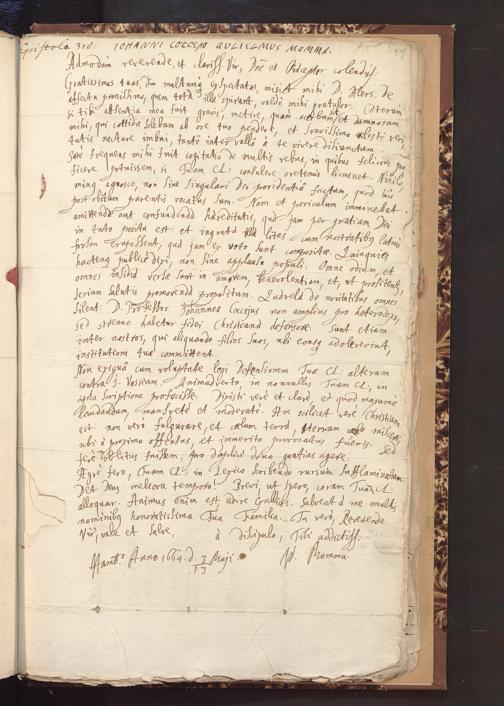 Epistola 300: IOHANNI COCCEIO GULIELMUS MOMMA.
Admodum reverende, et clariss. Vir, Dne et Præceptor colendiss.
Gratissimas tuas, diu multumq; exspectatas, misit mihi D. Alers. De
affectu pronissimo, quem totæ illæ spirant, valdè mihi gratulor. Cæterum
si tibi absentia mea fuit gravis, metire, quam acerbum, et damnosum
mihi, qui cottidiè solebam ab ore tuo pendere, et suavissimo cælesti veri
tatis nectare imbui, tanto intervallo à te vivere disiunctum.
Sæpe frequens mihi fuit cogitatio de multis rebus, in quibus felicius pro
ficere potuissem, si Tuam Cl: consulere præsentem licuisset. Nihilo
minus agnosco, non sine singulari Dei providentia factum, quod huc
post obitum parentis vocatus sum. Nam et periculum imminebat
amittendæ aut confundendæ hæreditatis, quæ jam per gratiam Dei
in tuto posita est: et ingratæ lites cum nostratibus latius
forsan erupissent, quæ jam ex voto sunt compositæ. Quinquies
hactenus publicè dixi, non sine applausu populi. Omne odium, et
omnes insidiæ versæ sunt in amorem, benevolentiam, et, ut profitentur,
serium salutis promovendæ propositum. De novitatibus omnes
silent. D. Professor Johannes Coccejus non amplius pro heterodoxo,
sed strenuo habetur fidei Christianæ defensore. Sunt etiam
inter nostros, qui aliquando filios suos, ubi adoleverint,
institutioni tuæ committent.
Non exiguâ cum voluptate legi Defensionem Tuæ Cl: alteram
contra J. Vossium. Animadverto, in nonnullis Tuam Cl: in
ipsa scriptione profecisse. Dixisti verè et clarè, et quod maxumè
laudandum, mansuetè et moderatè. Hoc scilicet verè Christianum
est non verò fulgurare, et cælum terræ miscere,
ubi à proximo offensus, et immerito provocatus fueris. Sed
gratias agere.
Ægrè fero, Tuam Cl. in Lexico scribendo rursum sufflaminatam.
Det Deus meliora tempora! Brevi, ut spero, coram Tuam Cl.
alloquar. Animus enim est adire Gallias. Salveat à me multis
nominibus honoratissima Tua Familia. Tu verò, Reverende
Vir, vale et salve, à discipulo, Tibi addictiss:
Hamb. Anno 1664. d. 3/13 Maji. W. Momma.